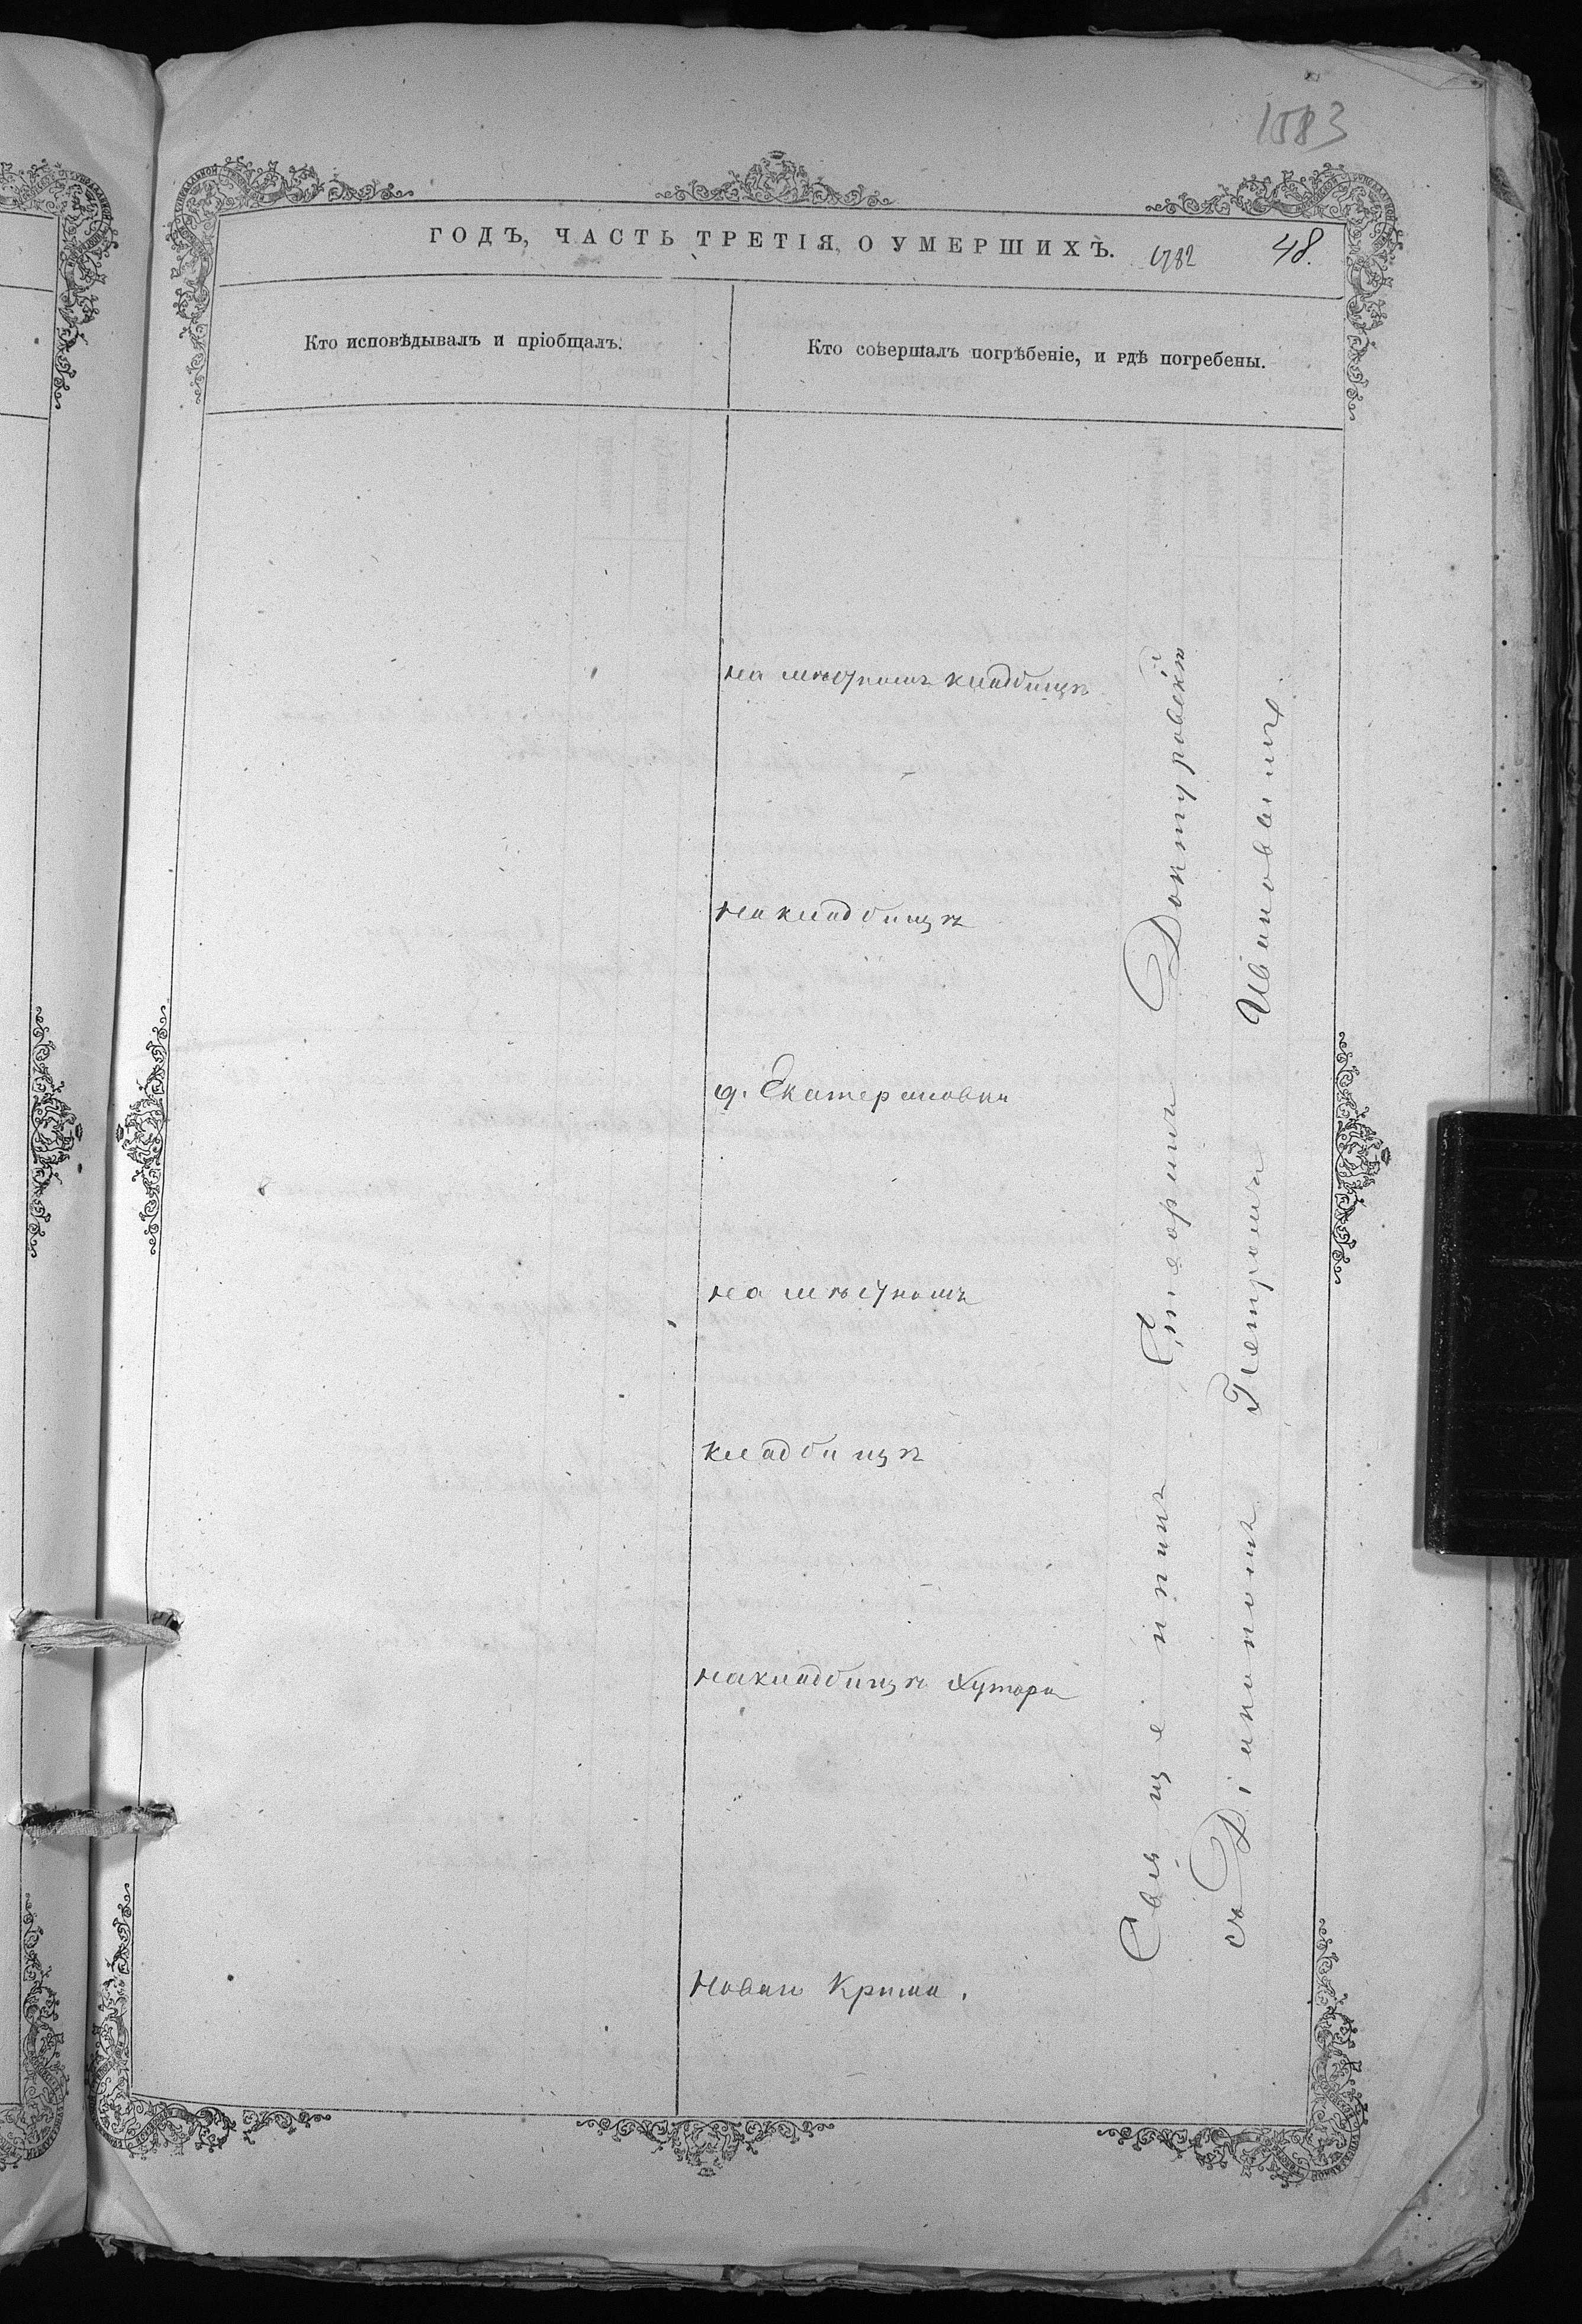 1583
ГОДЪ, ЧАСТЬ ТРЕТІЯ, О УМЕРШИХЪ.
48.
Кто исповѣдывалъ и пріобщалъ.
Кто совершалъ погрѣбеніе, и гдѣ погребены.
на мѣстномъ кладбищѣ
на кладбищѣ
д. Екатериновки
на мѣстномъ
кладбищѣ
на кладбищѣ Хутора
Новаго Крыма.
Священникъ Григорій Донтуровскій
съ Діакономъ Петромъ Ивановымъ.